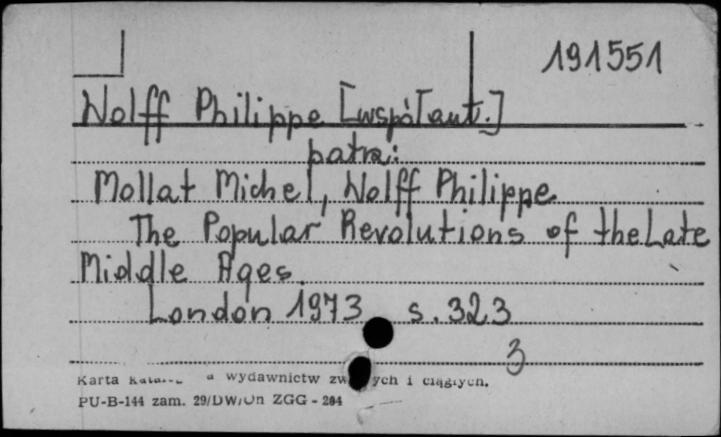 191551
Wolff Philippe [współaut.]
patrz:
Mollat Michel, Wolff Philippe
The Popular Revolutions of the Late
Middle Ages.
London 1973 s. 323
3
Karta wydawnictw i ciągłych.
PU-B-144 zam. 29/DW/Un ZGG - 204